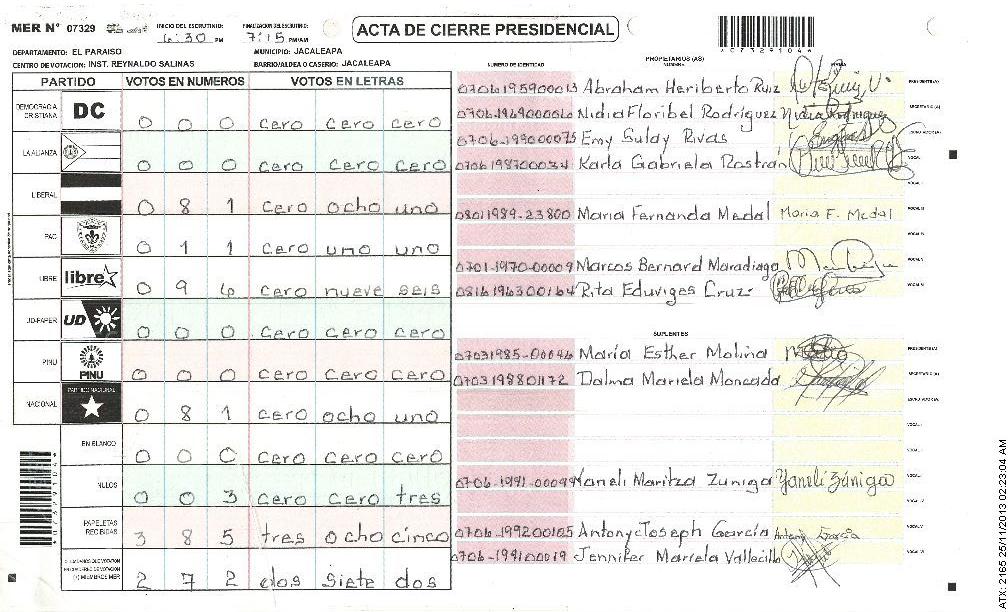 MER Nº 07329
INICIO DEL ESCRUTINIO: 6:30 PM
FINALIZACION DEL ESCRUTINIO: 7:15 PM/AM
ACTA DE CIERRE PRESIDENCIAL
*07329104*
DEPARTAMENTO: EL PARAISO
MUNICIPIO: JACALEAPA
CENTRO DE VOTACION: INST. REYNALDO SALINAS
BARRIO/ALDEA O CASERIO: JACALEAPA
PARTIDO VOTOS EN NUMEROS VOTOS EN LETRAS
DEMOCRACIA CRISTIANA DC 0 0 0 cero cero cero
LA ALIANZA 0 0 0 cero cero cero
LIBERAL 0 8 1 cero ocho uno
PAC 0 1 1 cero uno uno
LIBRE libre 0 9 6 cero nueve seis
UD-FAPER UD 0 0 0 cero cero cero
PINU PINU 0 0 0 cero cero cero
NACIONAL PARTIDO NACIONAL 0 8 1 cero ocho uno
EN BLANCO 0 0 0 cero cero cero
NULOS 0 0 3 cero cero tres
PAPELETAS RECIBIDAS 3 8 5 tres ocho cinco
(+) MIEMBROS MER 2 7 2 dos siete dos
NUMERO DE IDENTIDAD PROPIETARIOS (AS) NOMBRE FIRMA
0706195900013 Abraham Heriberto Ruiz PRESIDENTE(A)
0706-196900060 Nidia Floribel Rodríguez Nidia Rodriguez SECRETARIO (A)
0706-199000075 Emy Sulay Rivas ESCRUTADOR(A)
0706198700034 Karla Gabriela Rostrán VOCAL I
VOCAL II
08011989-23800 Maria Fernanda Medal Maria F. Medal VOCAL III
VOCAL IV
0701-1970-00009 Marcos Bernard Maradiaga VOCAL V
0816196300164 Rita Eduviges Cruz VOCAL VI
SUPLENTES
07031985-00046 María Esther Molina PRESIDENTE(A)
0703198801172 Dalma Mariela Moncada SECRETARIO (A)
ESCRUTADOR(A)
VOCAL I
VOCAL II
0706-1991-00099 Yaneli Maritza Zuniga Yaneli Zúniga VOCAL III
VOCAL IV
0706-199200105 Antony Joseph García Antony García VOCAL V
0706-199100019 Jennifer Mariela Vallecillo VOCAL VI
*07329104*
ATX: 2165 25/11/2013 02:23:04 AM